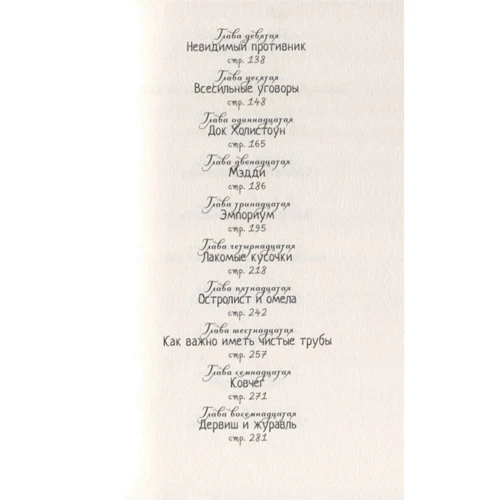 Глава девятая
Невидимый противник
стр. 138
Глава десятая
Всесильные уговоры
стр. 148
Глава одиннадцатая
Док Холистоун
стр. 165
Глава двенадцатая
Мэдди
стр. 186
Глава тринадцатая
Эмпориум
стр. 195
Глава четырнадцатая
Лакомые кусочки
стр. 218
Глава пятнадцатая
Остролист и омела
стр. 242
Глава шестнадцатая
Как важно иметь чистые трубы
стр. 257
Глава семнадцатая
Ковчег
стр. 271
Глава восемнадцатая
Дервиш и журавль
стр. 281